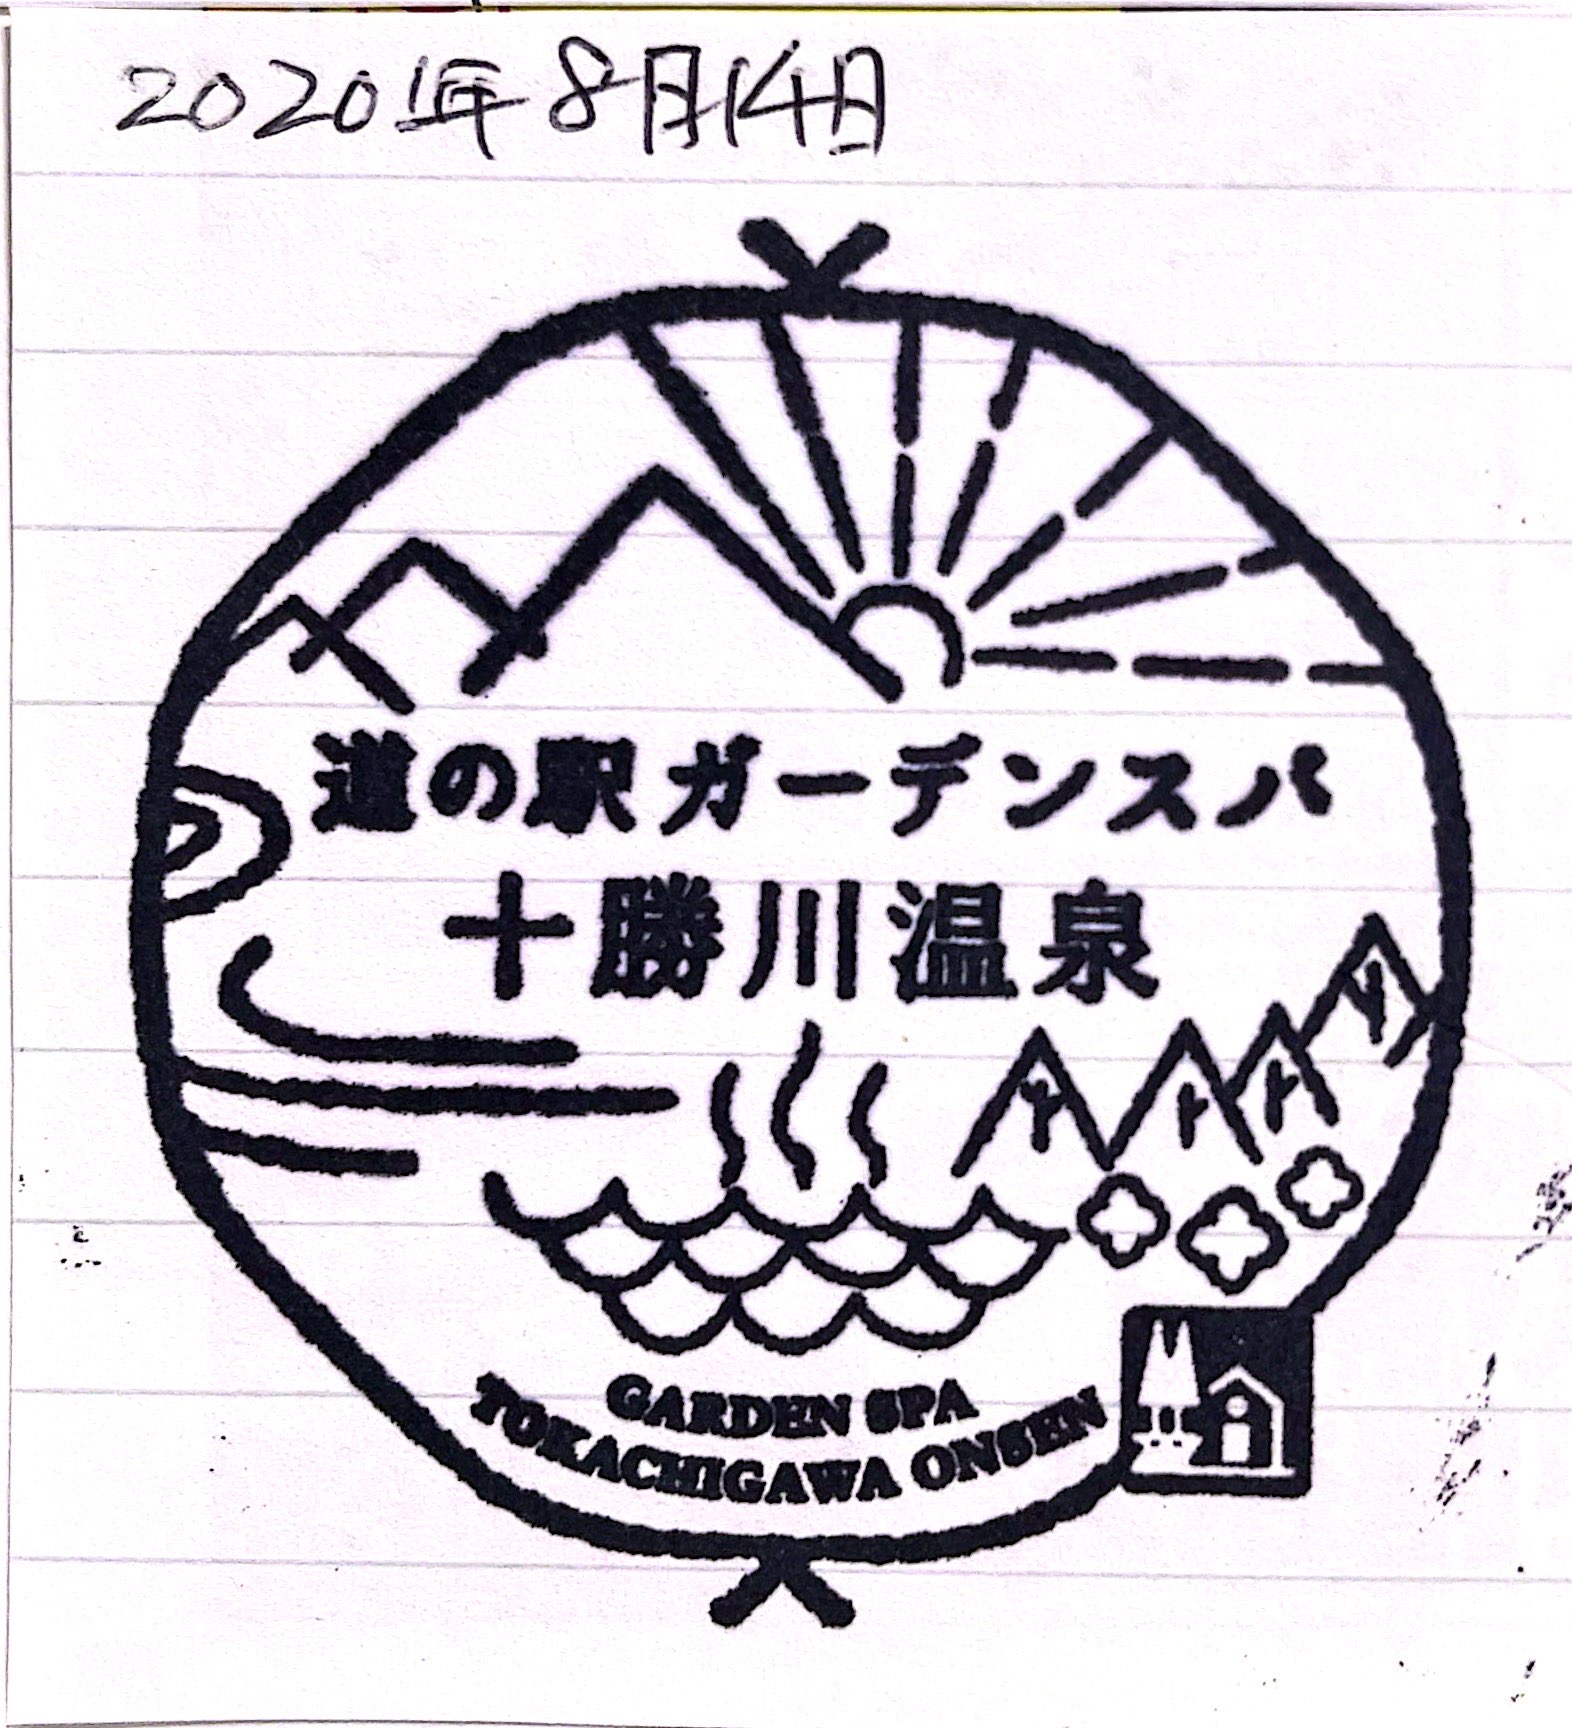 2020年8月14日
道の駅ガーデンスパ
十勝川温泉
GARDEN SPA
TOKACHIGAWA ONSEN